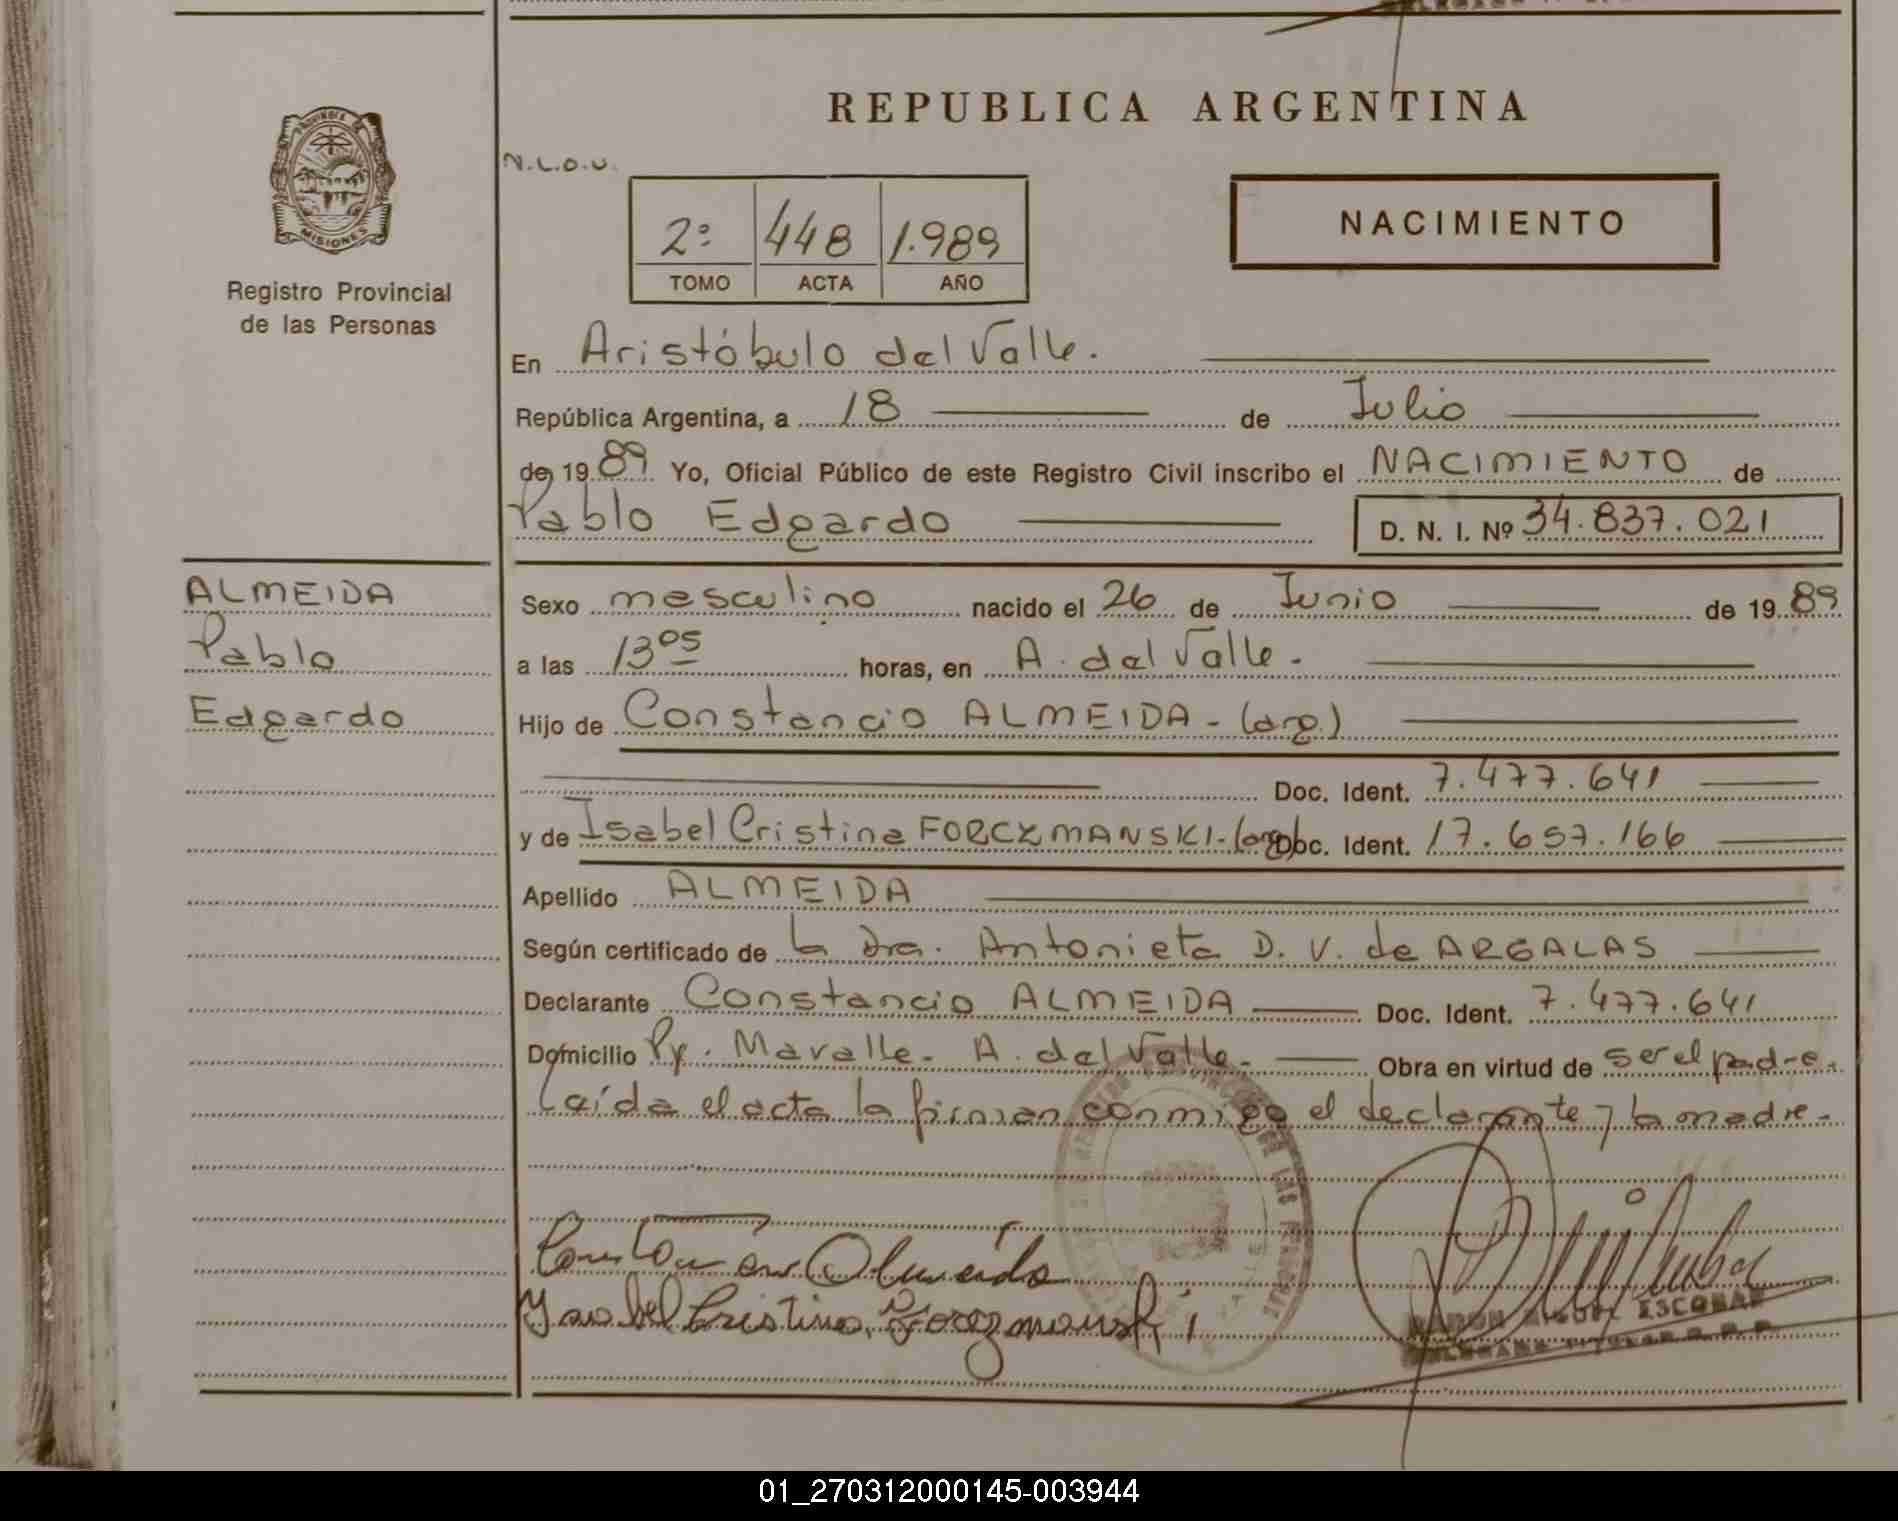 REPUBLICA ARGENTINA
PROVINCIA DE
MISIONES
Registro Provincial
de las Personas
N.L.O.U.
2º 448 1.989
TOMO ACTA AÑO
NACIMIENTO
En Aristóbulo del Valle.
República Argentina, a 18 de Julio
de 19 89 Yo, Oficial Público de este Registro Civil inscribo el NACIMIENTO de
Pablo Edgardo D. N. I. Nº 34.837.021
ALMEIDA
Pablo
Edgardo
Sexo masculino nacido el 26 de Junio de 19 89
a las 13 05 horas, en A. del Valle.
Hijo de Constancio ALMEIDA - (arg.)
Doc. Ident. 7.477.641
y de Isabel Cristina FORCZMANSKI - (arg) Doc. Ident. 17.657.166
Apellido ALMEIDA
Según certificado de la Dra. Antonieta D. V. de ARGALAS
Declarante Constancio ALMEIDA Doc. Ident. 7.477.641
Domicilio Py. Mavalle - A. del Valle - Obra en virtud de ser el padre.
Leída el acta la firman conmigo el declarante y la madre -
Constancio Almeida
Ysabel Cristina Forczmanski
RAMON MIGUEL ESCOBAR
DELEGADO TITULAR
01_270312000145-003944